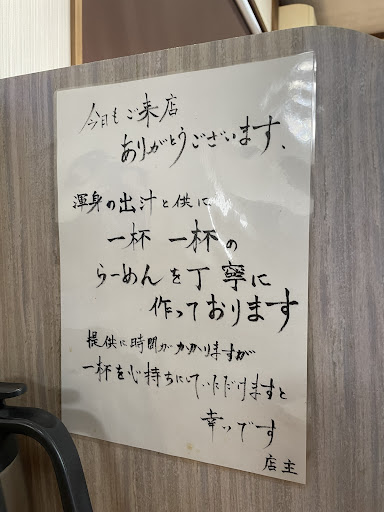 今日もご来店
ありがとうございます、
渾身の出汁と供に
一杯 一杯の
らーめんを丁寧に
作っております
提供に時間がかかりますが
一杯を心持ちにしていただけますと
幸いです
店主